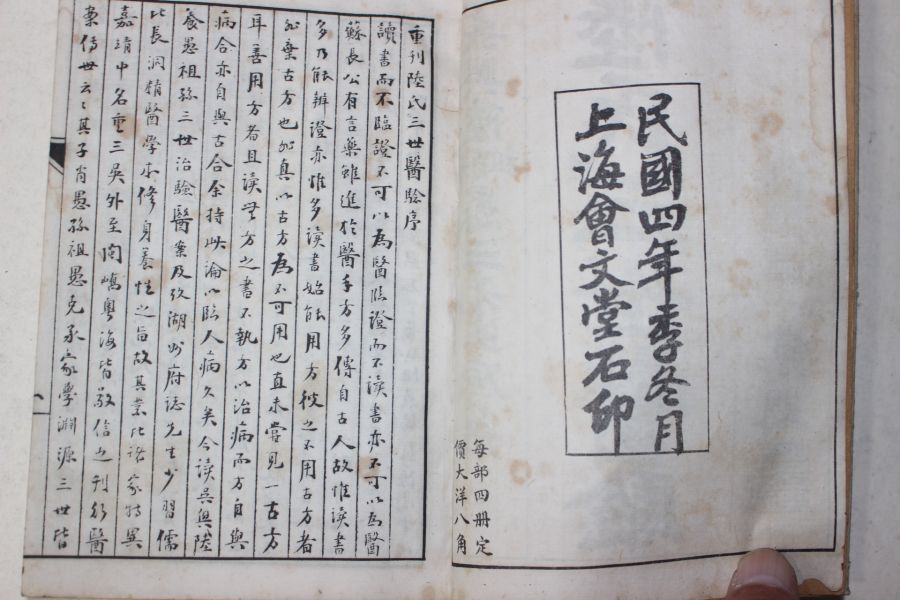 民國四年季冬月
上海會文堂石印
每部四册定
價大洋八角
重刊陸氏三世醫驗序
讀書而不臨證不可以為醫臨證而不讀書亦不可以為醫
蘇長公有言藥雖進於醫手方多傳自古人故惟讀書
多乃能辨證亦惟多讀書始能用方彼之不用古方者
非棄古方也如真以古方為不可用也直未嘗見一古方
耳善用方者且讀無方之書不執方以治病而方自與
病合亦自與古合余持此論以臨人病久矣今讀吳興陸
養愚祖孫三世治驗醫案及攷湖州府誌先生少習儒
比長洞精醫學本修身養性之旨故其業比諸家特異
嘉靖中名重三吳外至閩嶠粵海皆敬信之刊行醫
案傳世云云其子肖愚孫祖愚克承家學淵源三世皆